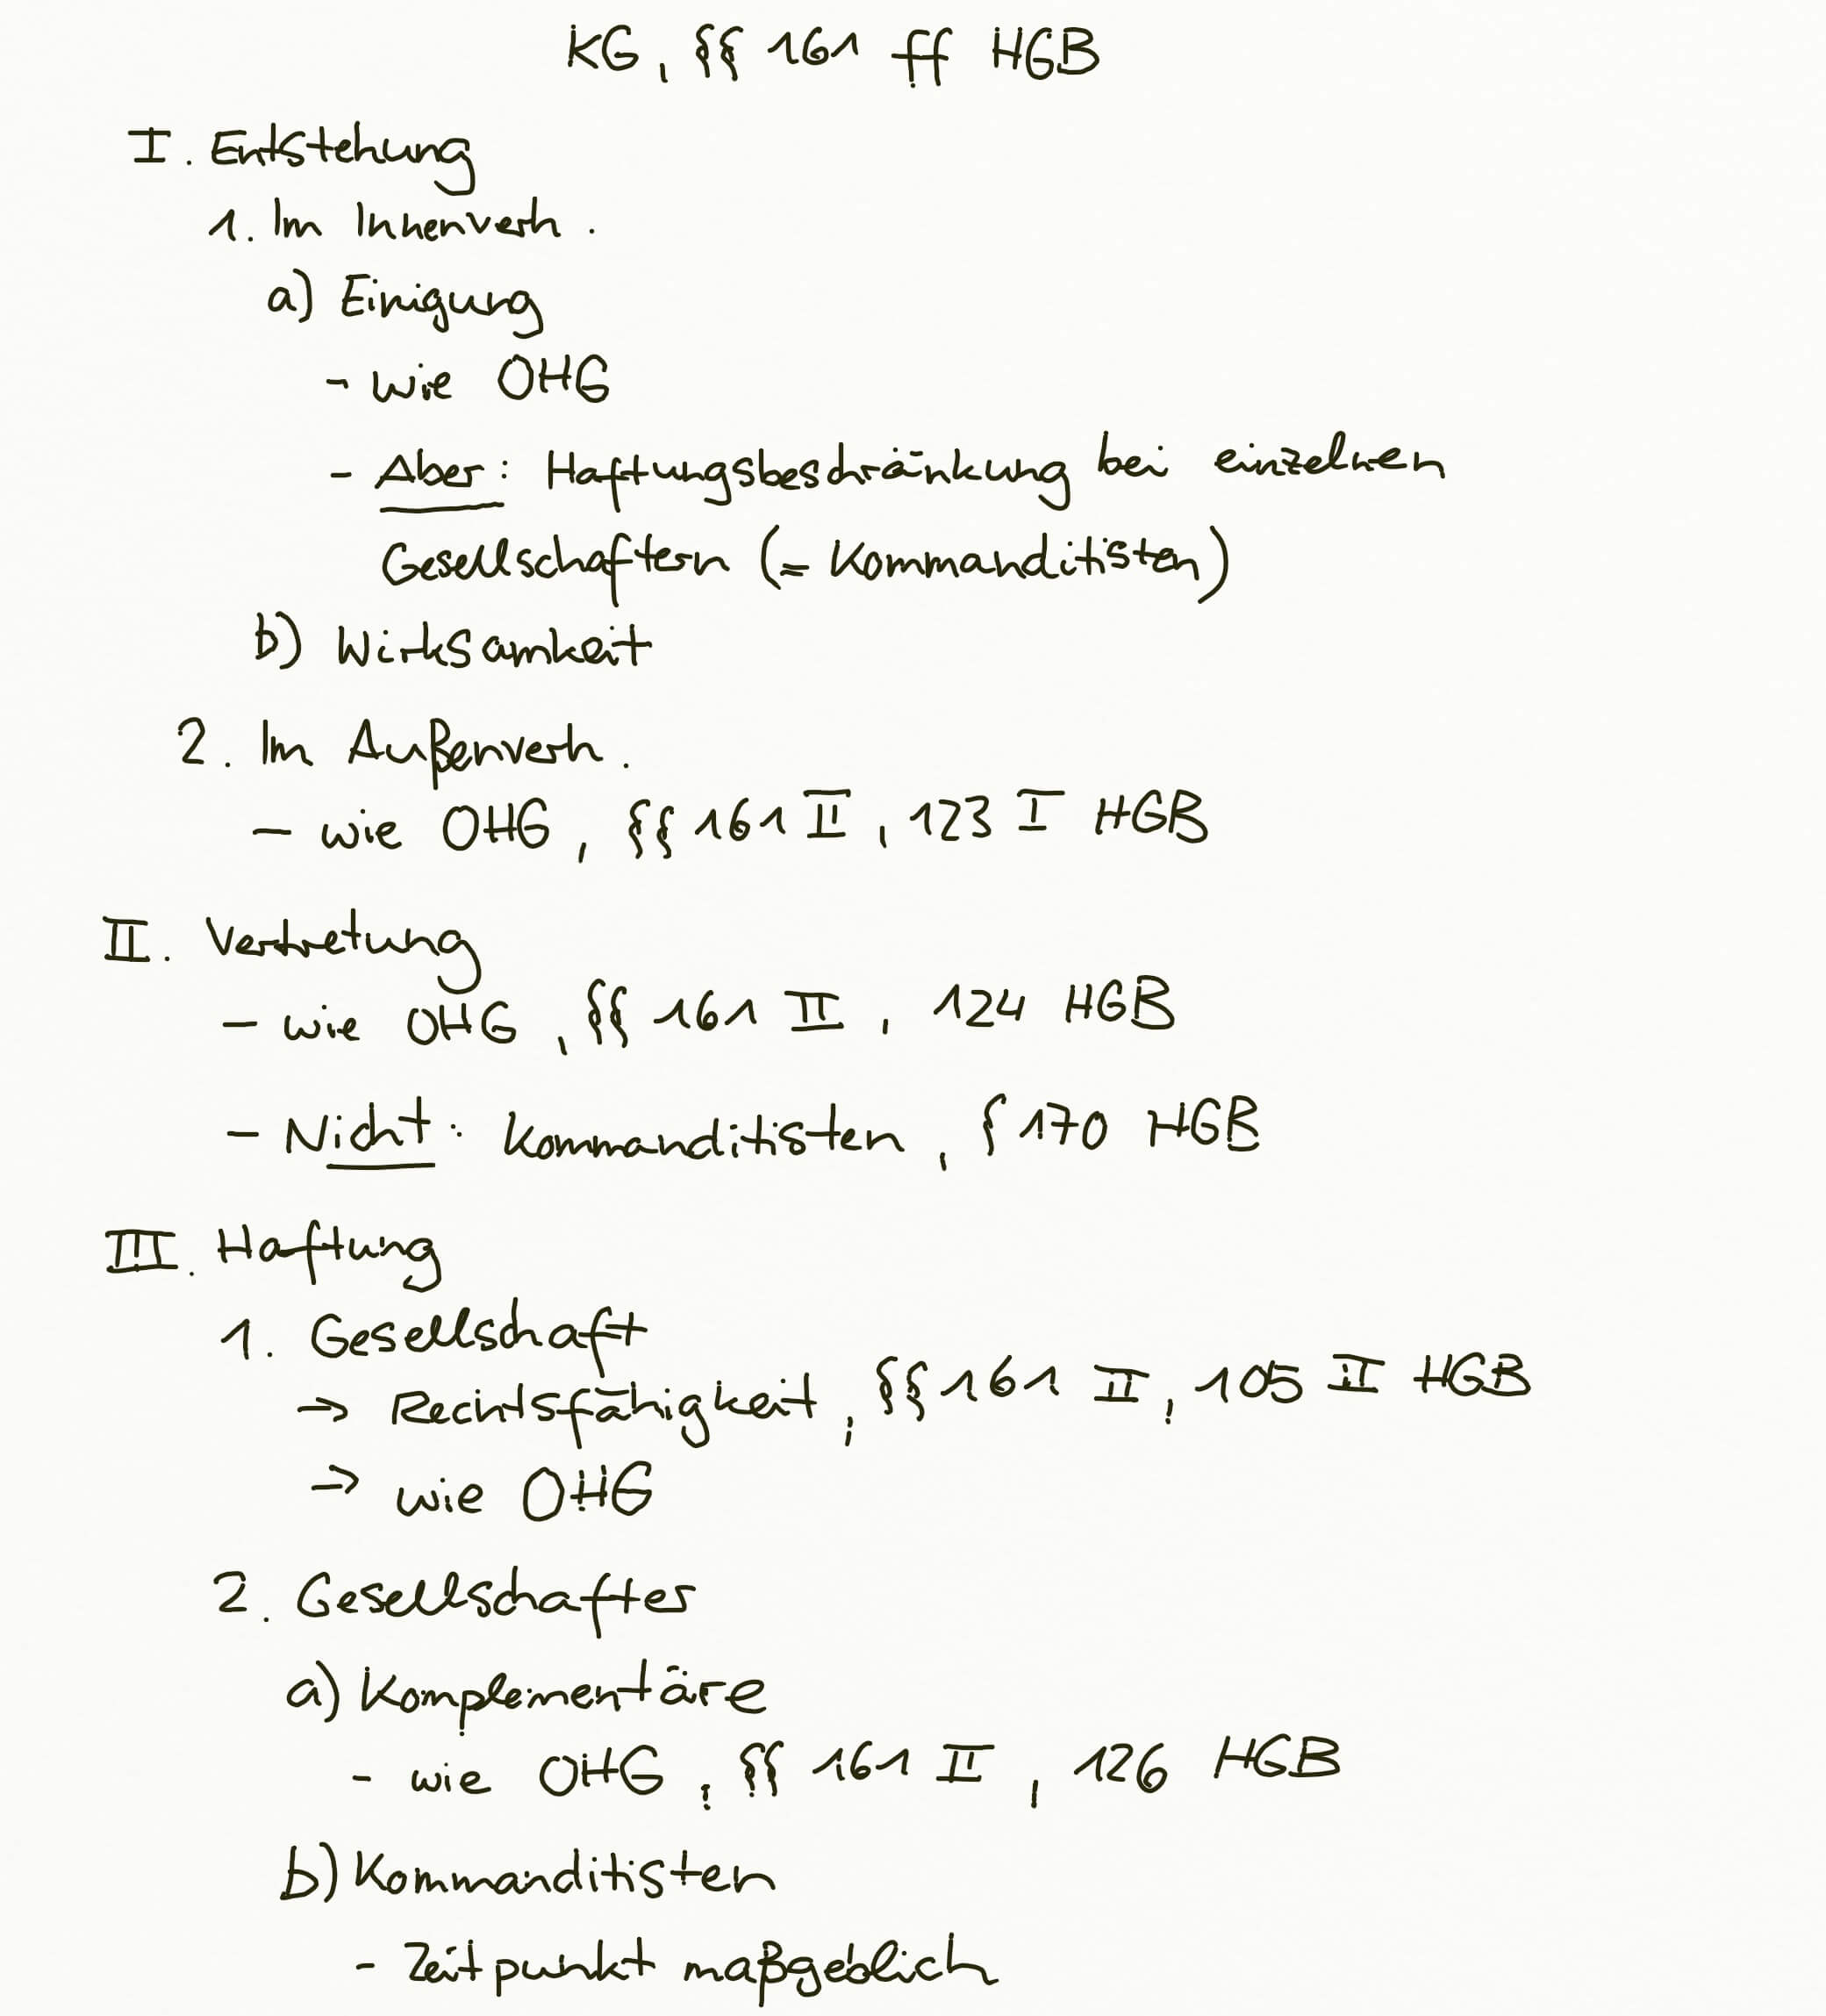 KG, §§ 161 ff HGB
I. Entstehung
1. Im Innenverh.
a) Einigung
- wie OHG
- Aber: Haftungsbeschränkung bei einzelnen
Gesellschaftern (= Kommanditisten)
b) Wirksamkeit
2. Im Außenverh.
- wie OHG, §§ 161 II, 123 I HGB
II. Vertretung
- wie OHG, §§ 161 II, 124 HGB
- Nicht: Kommanditisten, § 170 HGB
III. Haftung
1. Gesellschaft
→ Rechtsfähigkeit, §§ 161 II, 105 II HGB
→ wie OHG
2. Gesellschafter
a) Komplementäre
- wie OHG, §§ 161 II, 126 HGB
b) Kommanditisten
- Zeitpunkt maßgeblich